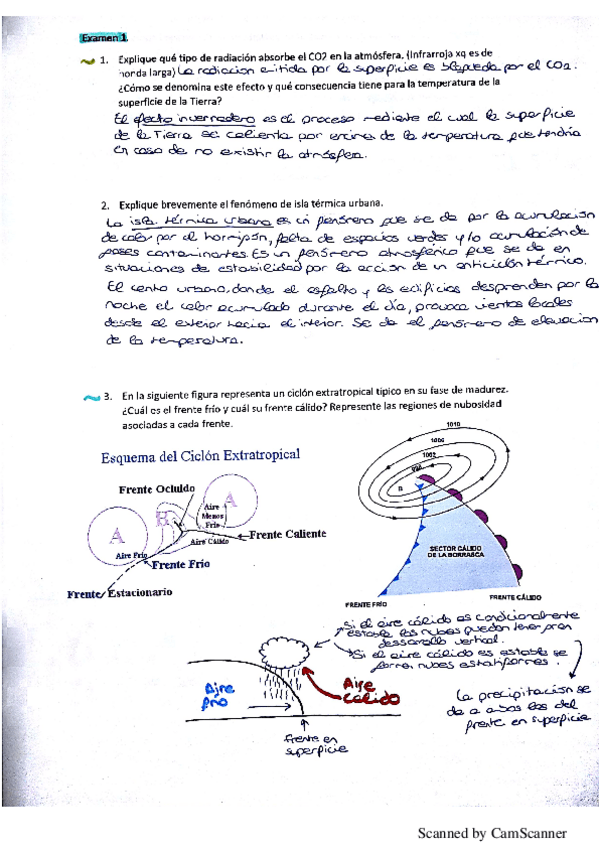 Examen 1.
1. Explique qué tipo de radiación absorbe el CO2 en la atmósfera. (Infrarroja xq es de
honda larga) La radiación emitida por la superficie es bloqueada por el CO2.
¿Cómo se denomina este efecto y qué consecuencia tiene para la temperatura de la
superficie de la Tierra?
El efecto invernadero es el proceso mediante el cual la superficie
de la Tierra se calienta por encima de la temperatura que tendría
en caso de no existir la atmósfera.
2. Explique brevemente el fenómeno de isla térmica urbana.
La isla térmica urbana es un fenómeno que se da por la acumulación
de calor por el hormigón, falta de espacios verdes y/o acumulación de
gases contaminantes. Es un fenómeno atmosférico que se da en
situaciones de estabilidad por la acción de un anticiclón térmico.
El centro urbano, donde el asfalto y los edificios desprenden por la
noche el calor acumulado durante el día, provoca vientos locales
desde el exterior hacia el interior. Se da el fenómeno de elevación
de la temperatura.
3. En la siguiente figura representa un ciclón extratropical típico en su fase de madurez.
¿Cuál es el frente frío y cuál su frente cálido? Represente las regiones de nubosidad
asociadas a cada frente.
Esquema del Ciclón Extratropical
Frente Ocluido
A
B
Aire
Menos
Frío
A
Aire Frío
Aire Cálido
Frente Caliente
Frente Frío
Frente Estacionario
1010
1006
1002
B
SECTOR CÁLIDO
DE LA BORRASCA
FRENTE FRÍO
FRENTE CÁLIDO
Si el aire cálido es condicionalmente
estable las nubes pueden tener gran
desarrollo vertical.
Si el aire cálido es estable se
forman nubes estratiformes.
La precipitación se
da a ambos lados del
frente en superficie
Aire
frío
Aire
cálido
frente en
superficie
Scanned by CamScanner